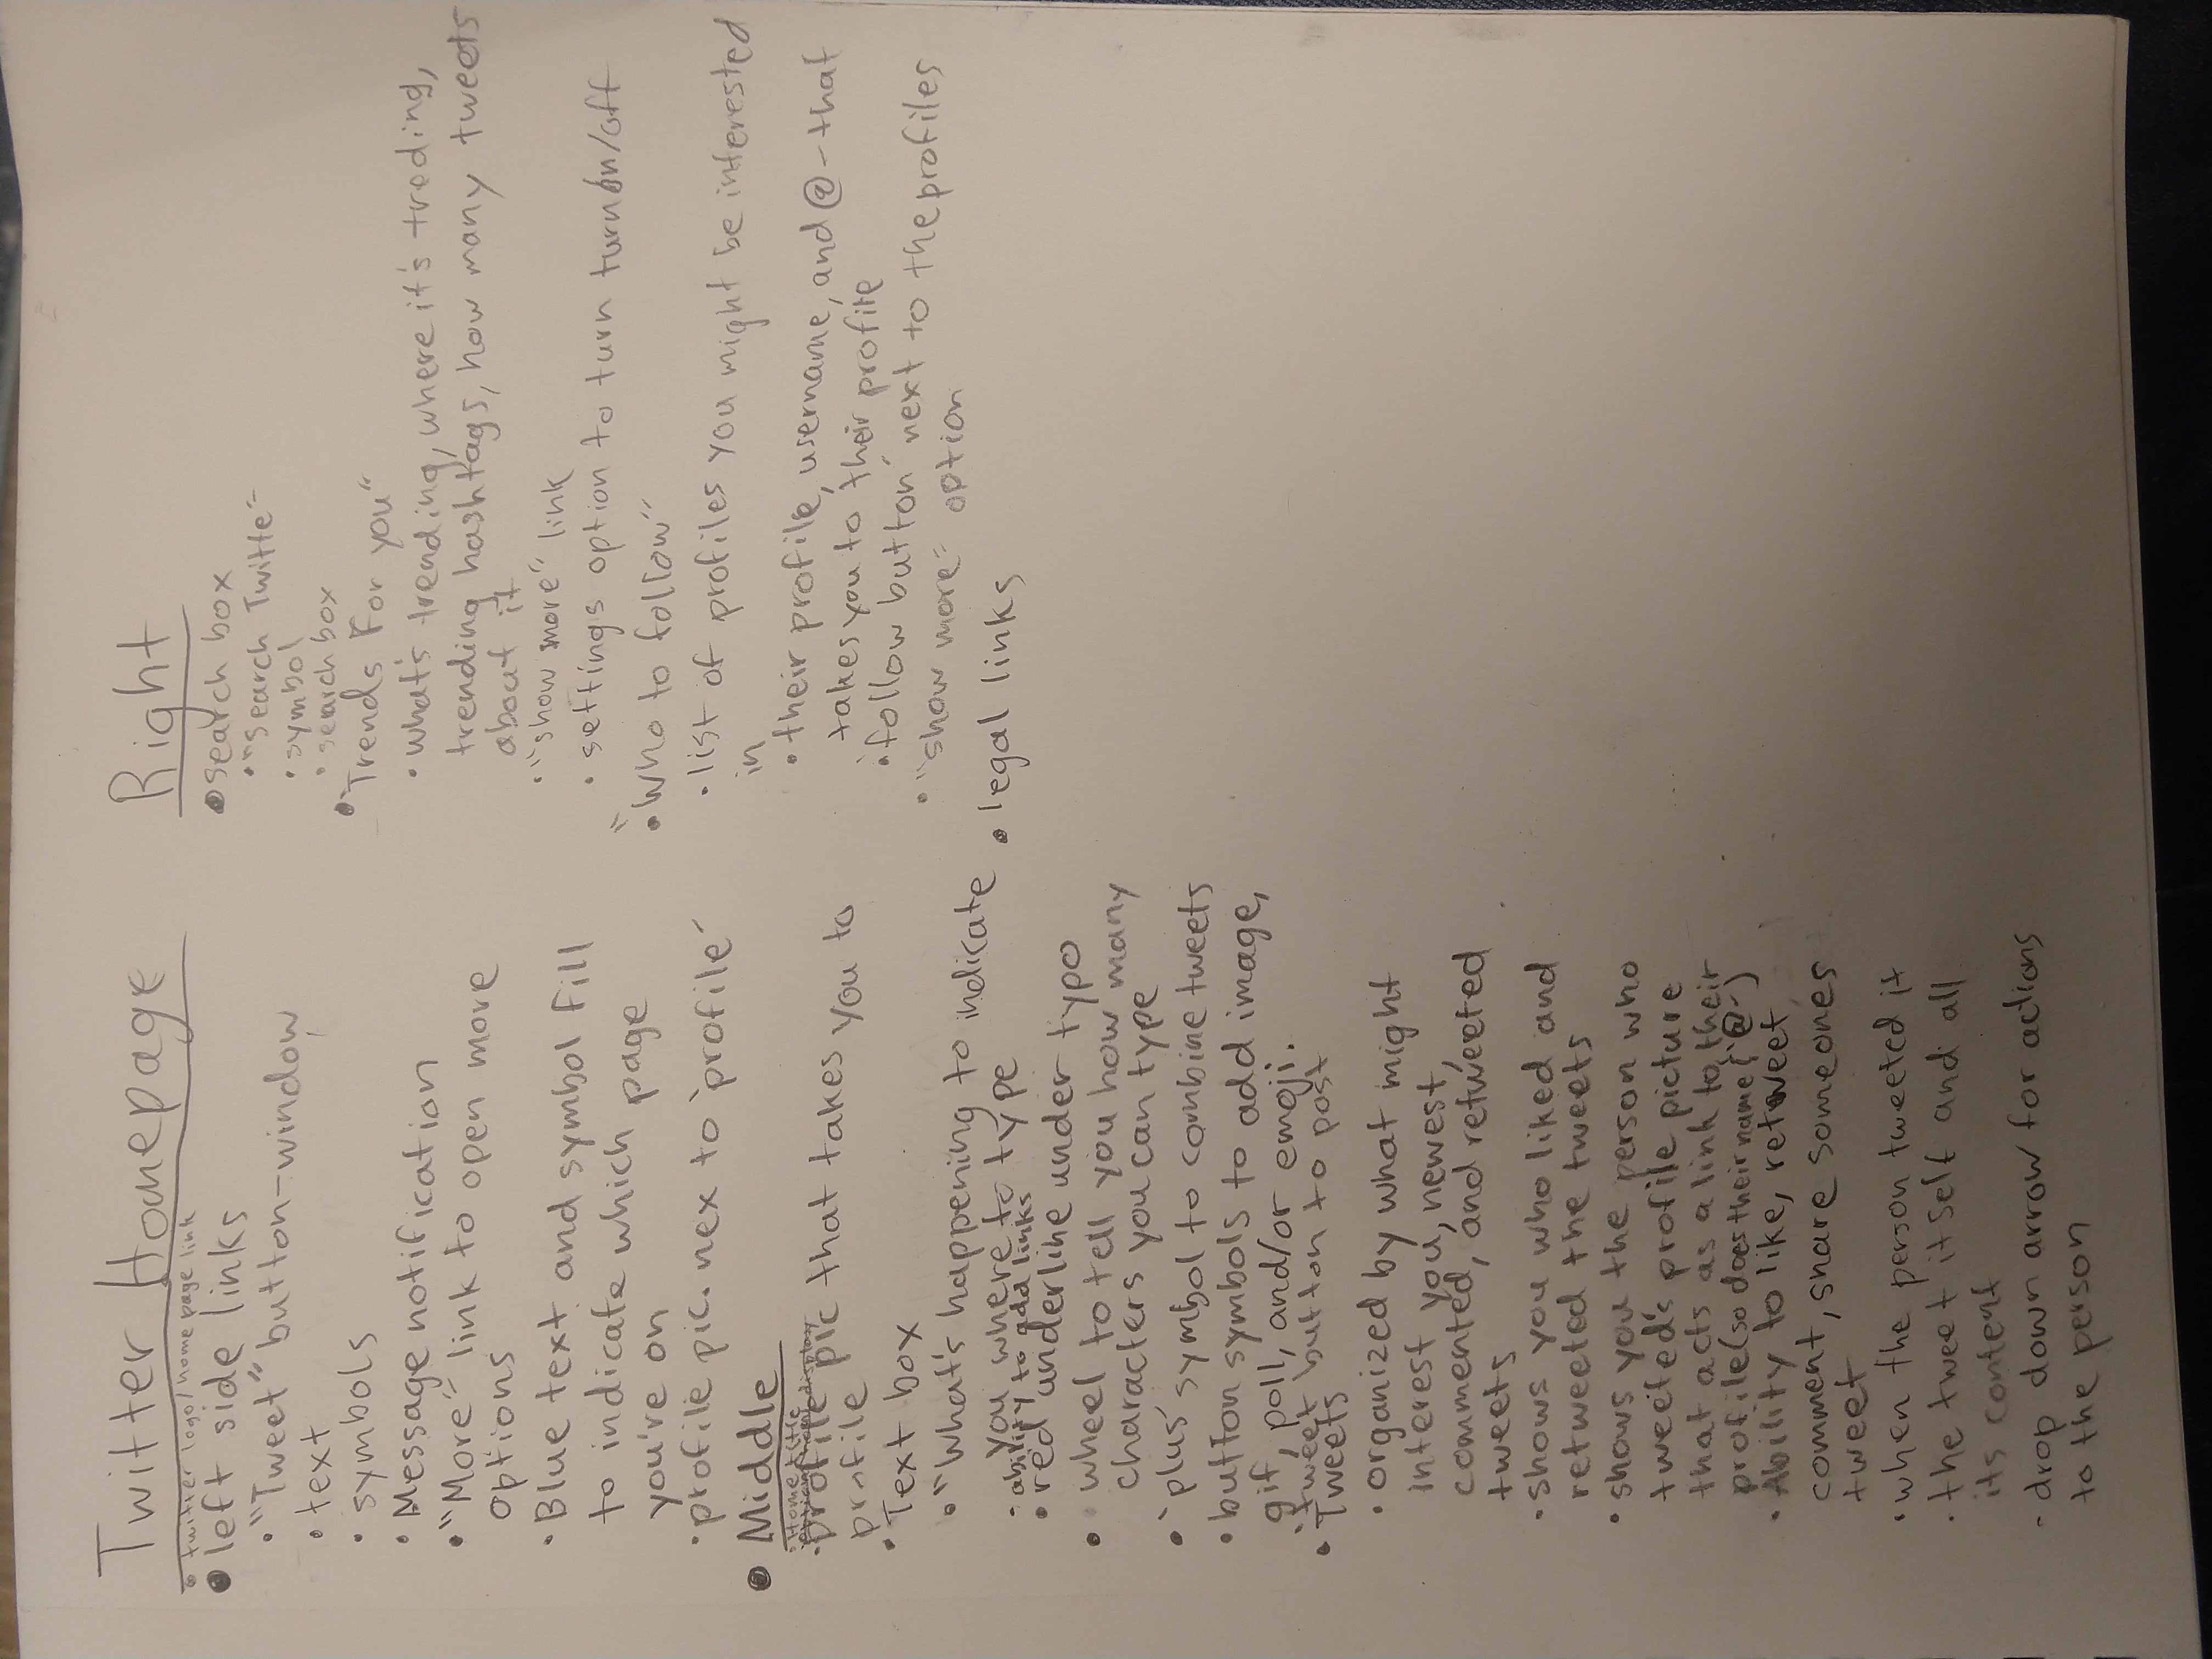 Twitter Homepage
• twitter logo/home page link
• left side links
• "Tweet" button-window
• text
• symbols
• Message notification
• "More" link to open more
options
• Blue text and symbol fill
to indicate which page
you're on
• profile pic. nex to 'profile'
• Middle
• Home title
options home display
• profile pic that takes you to
profile
• Text box
• "What's happening to indicate
you where to type
• ability to add links
• red underline under typo
• wheel to tell you how many
characters you can type
• 'plus' symbol to combine tweets
• button symbols to add image,
gif, poll, and/or emoji.
• tweet button to post
• Tweets
• organized by what might
interest you, newest,
commented, and retweeted
tweets
• shows you who liked and
retweeted the tweets
• shows you the person who
tweeted's profile picture
that acts as a link to their
profile (so does their name & '@')
• Ability to like, retweet
comment, share someones
tweet
• when the person tweeted it
• the tweet itself and all
its content
- drop down arrow for actions
to the person
Right
• search box
• "Search Twitte"
• symbol
• search box
• "Trends For you"
• what's trending, where it's treding,
trending hashtags, how many tweets
about it
• "show more" link
• settings option to turn turn on/off
• "Who to follow"
• list of profiles you might be interested
in
• their profile, username, and @ - that
takes you to their profile
• 'follow button' next to the profiles
• "show more" option
• legal links